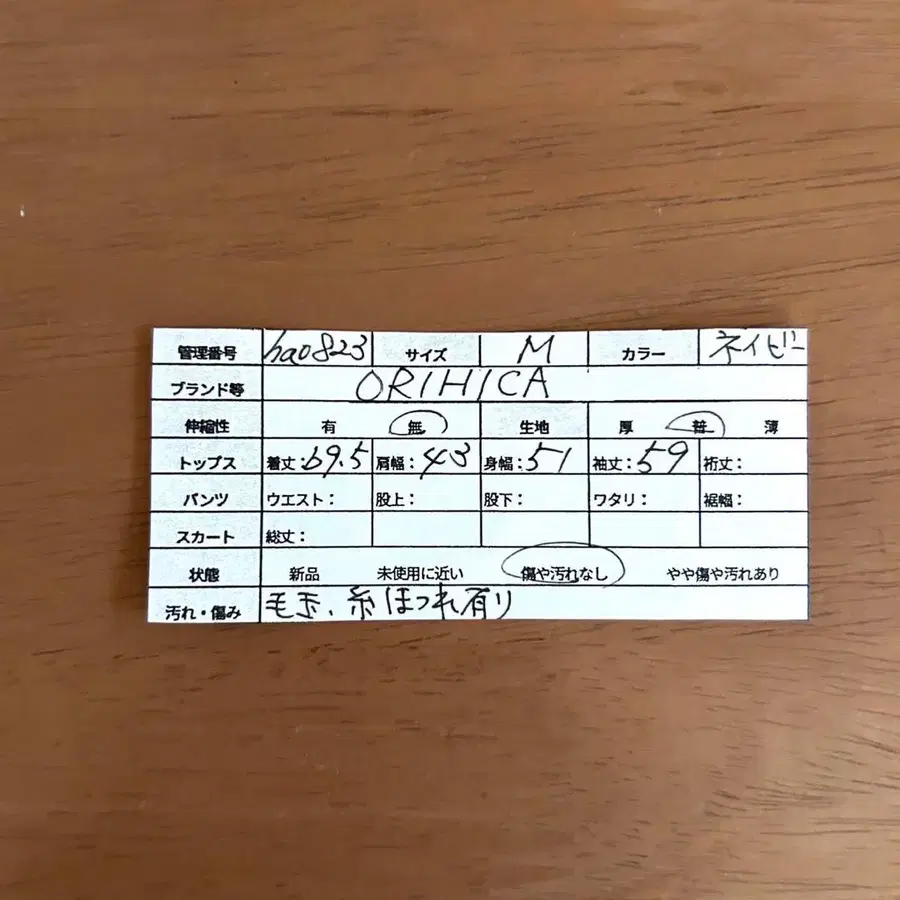 管理番号 ha0823 サイズ M カラー ネイビー
ブランド等 ORIHICA
伸縮性 有 無 生地 厚 普 薄
トップス 着丈:69.5 肩幅:43 身幅:51 袖丈:59 裄丈:
パンツ ウエスト: 股上: 股下: ワタリ: 裾幅:
スカート 総丈:
状態 新品 未使用に近い 傷や汚れなし やや傷や汚れあり
汚れ・傷み 毛玉、糸ほつれ有り